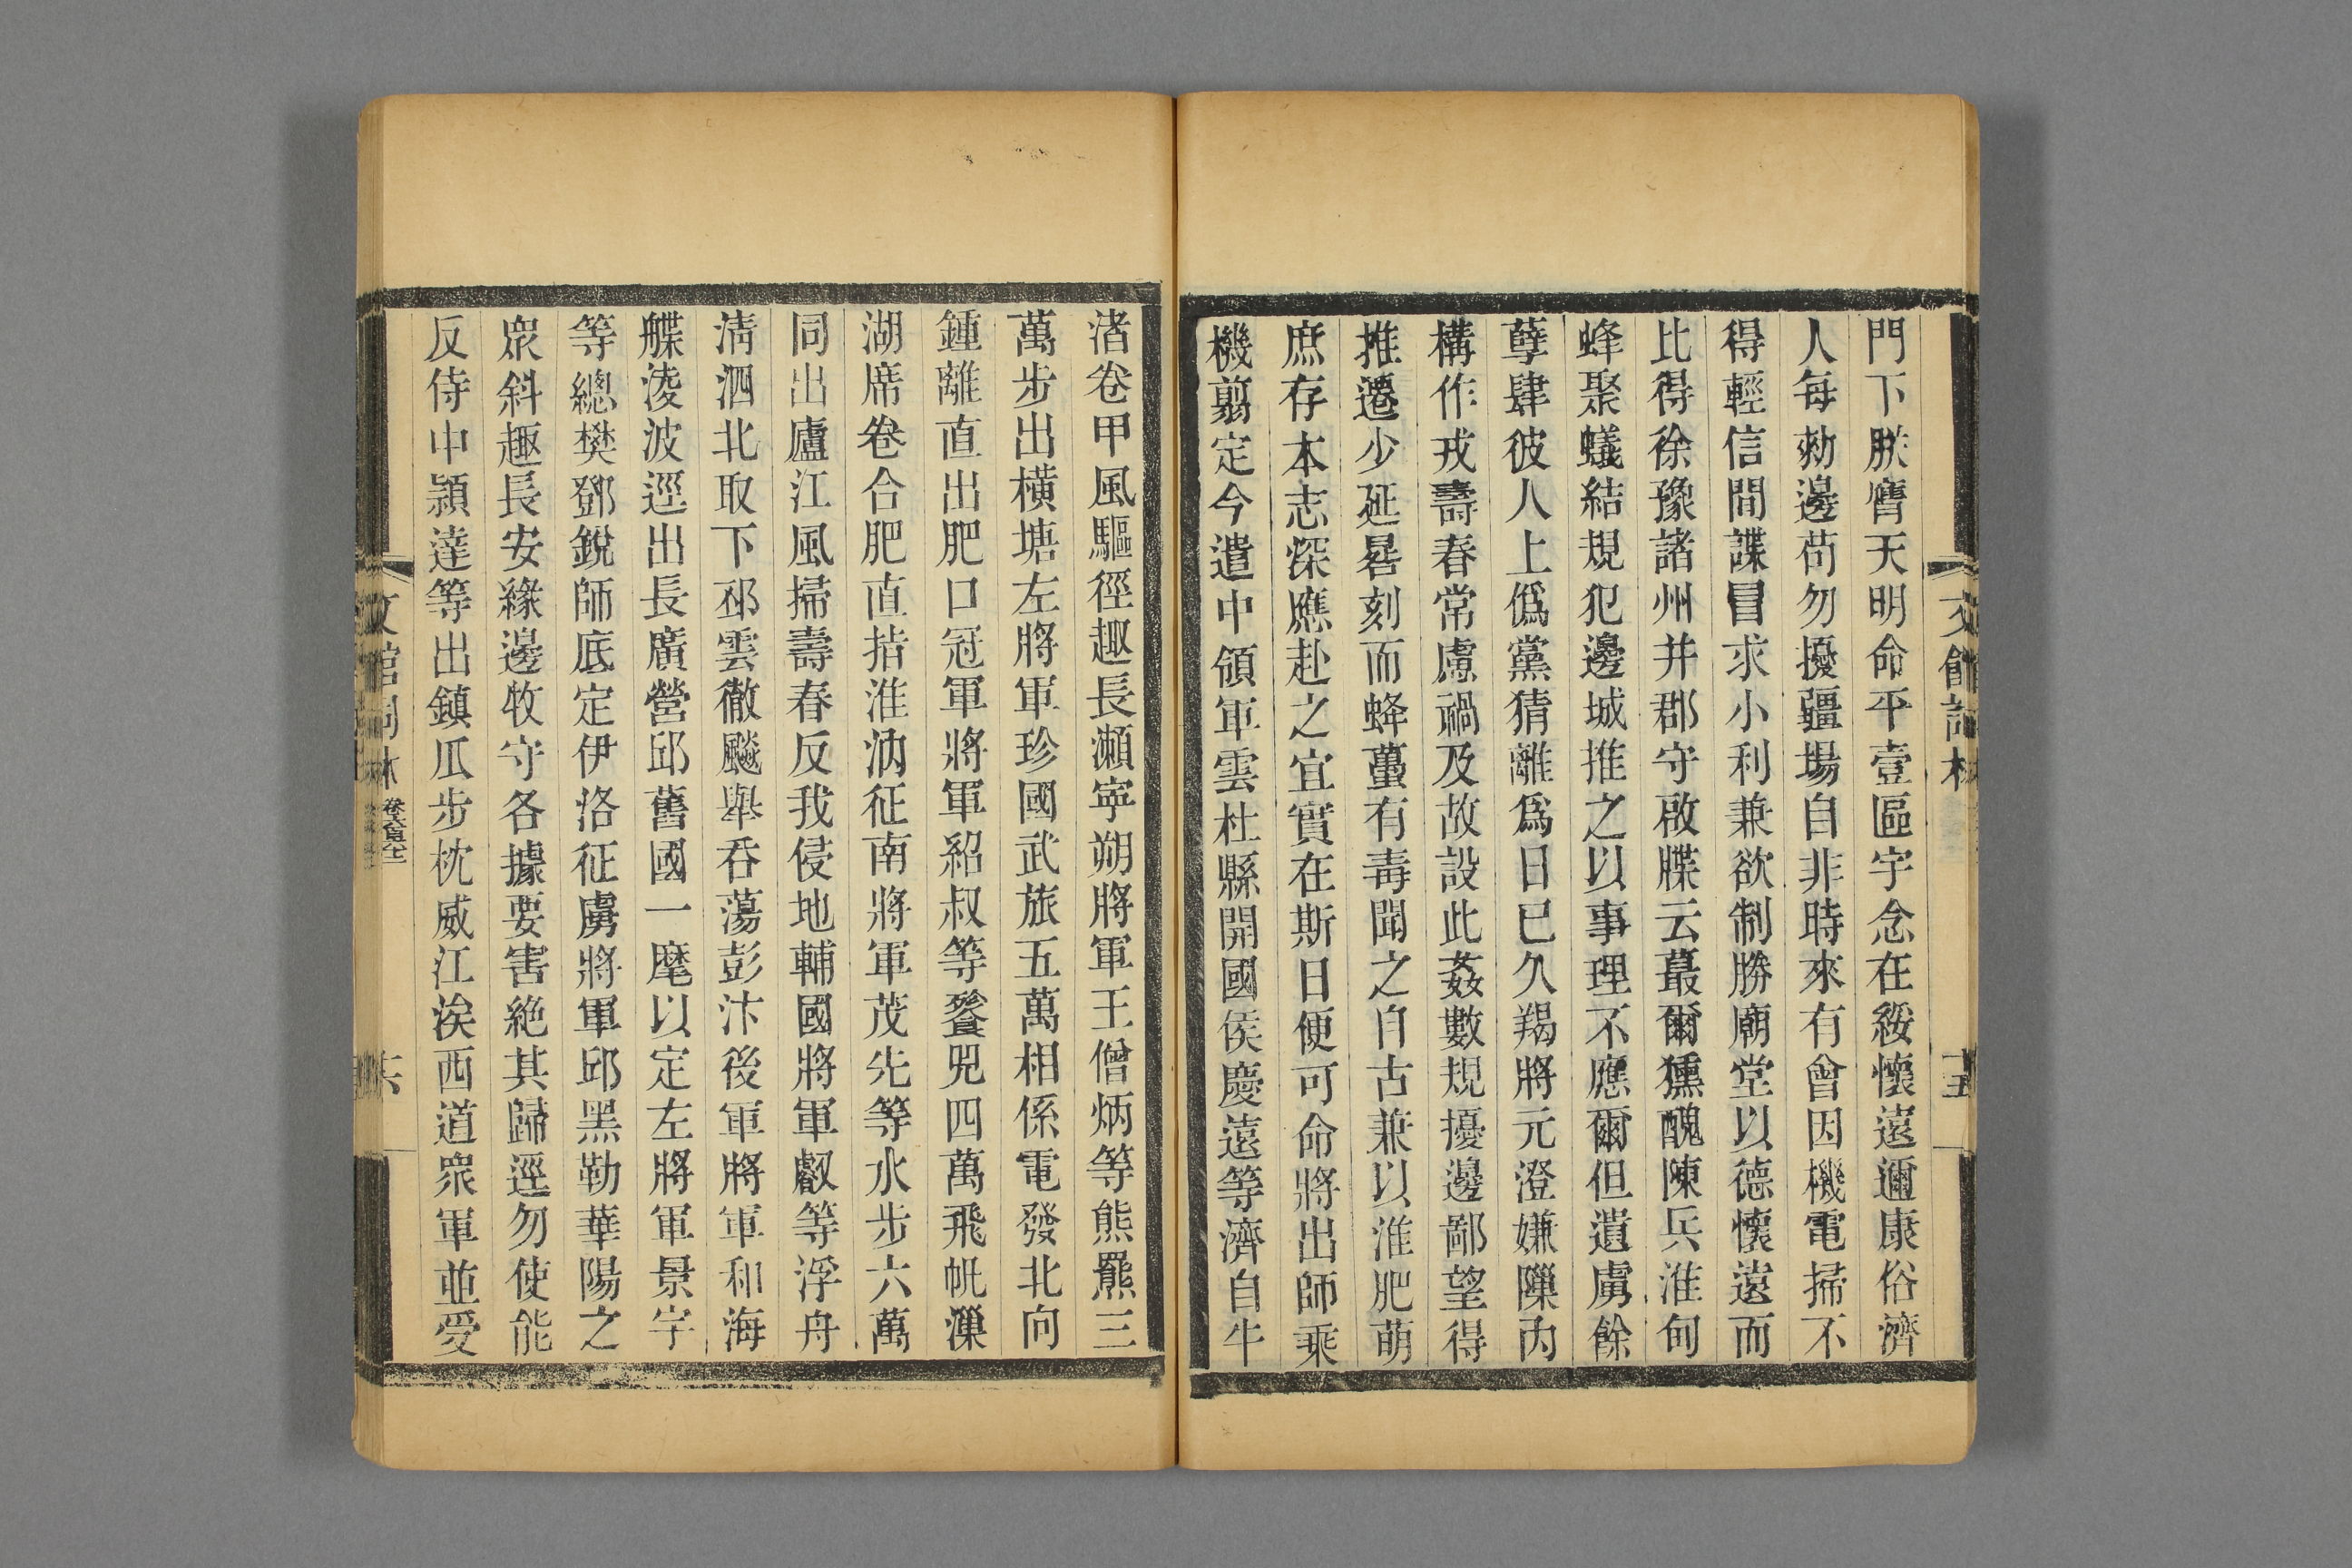 文館詞林
十五
門下朕膺天明命平壹區宇念在綏懷遠邇康俗濟
人每勑邊苟勿擾疆場自非時來有會因機電掃不
得輕信間諜冒求小利兼欲制勝廟堂以德懷遠而
比得徐豫諸州并郡守啟牒云蕞爾獯醜陳兵淮甸
蜂聚蟻結規犯邊城推之以事理不應爾但遺虜餘
孽肆彼人上僞黨猜離爲日已久羯將元澄嫌隟內
構作戎壽春常慮禍及故設此姦數規擾邊鄙望得
推遷少延晷刻而蜂蠆有毒聞之自古兼以淮肥萌
庶存本志深應赴之宜實在斯日便可命將出師乘
機翦定今遣中領軍雲杜縣開國侯慶遠等濟自牛
渚卷甲風驅徑趣長瀨寧朔將軍王僧炳等熊羆三
萬步出橫塘左將軍珍國武旅五萬相係電發北向
鍾離直出肥口冠軍將軍紹叔等餮兕四萬飛帆漅
湖席卷合肥直指淮汭征南將軍茂先等水步六萬
同出廬江風掃壽春反我侵地輔國將軍叡等浮舟
淸泗北取下邳雲徹飈舉呑蕩彭汴後軍將軍和海
艓淩波逕出長廣營邱舊國一麾以定左將軍景宇
等總樊鄧銳師底定伊洛征虜將軍邱黑勒華陽之
衆斜趣長安緣邊牧守各據要害絶其歸逕勿使能
反侍中潁達等出鎮瓜步枕威江涘西道衆軍並受
文館詞林
卷六百六十二
十六